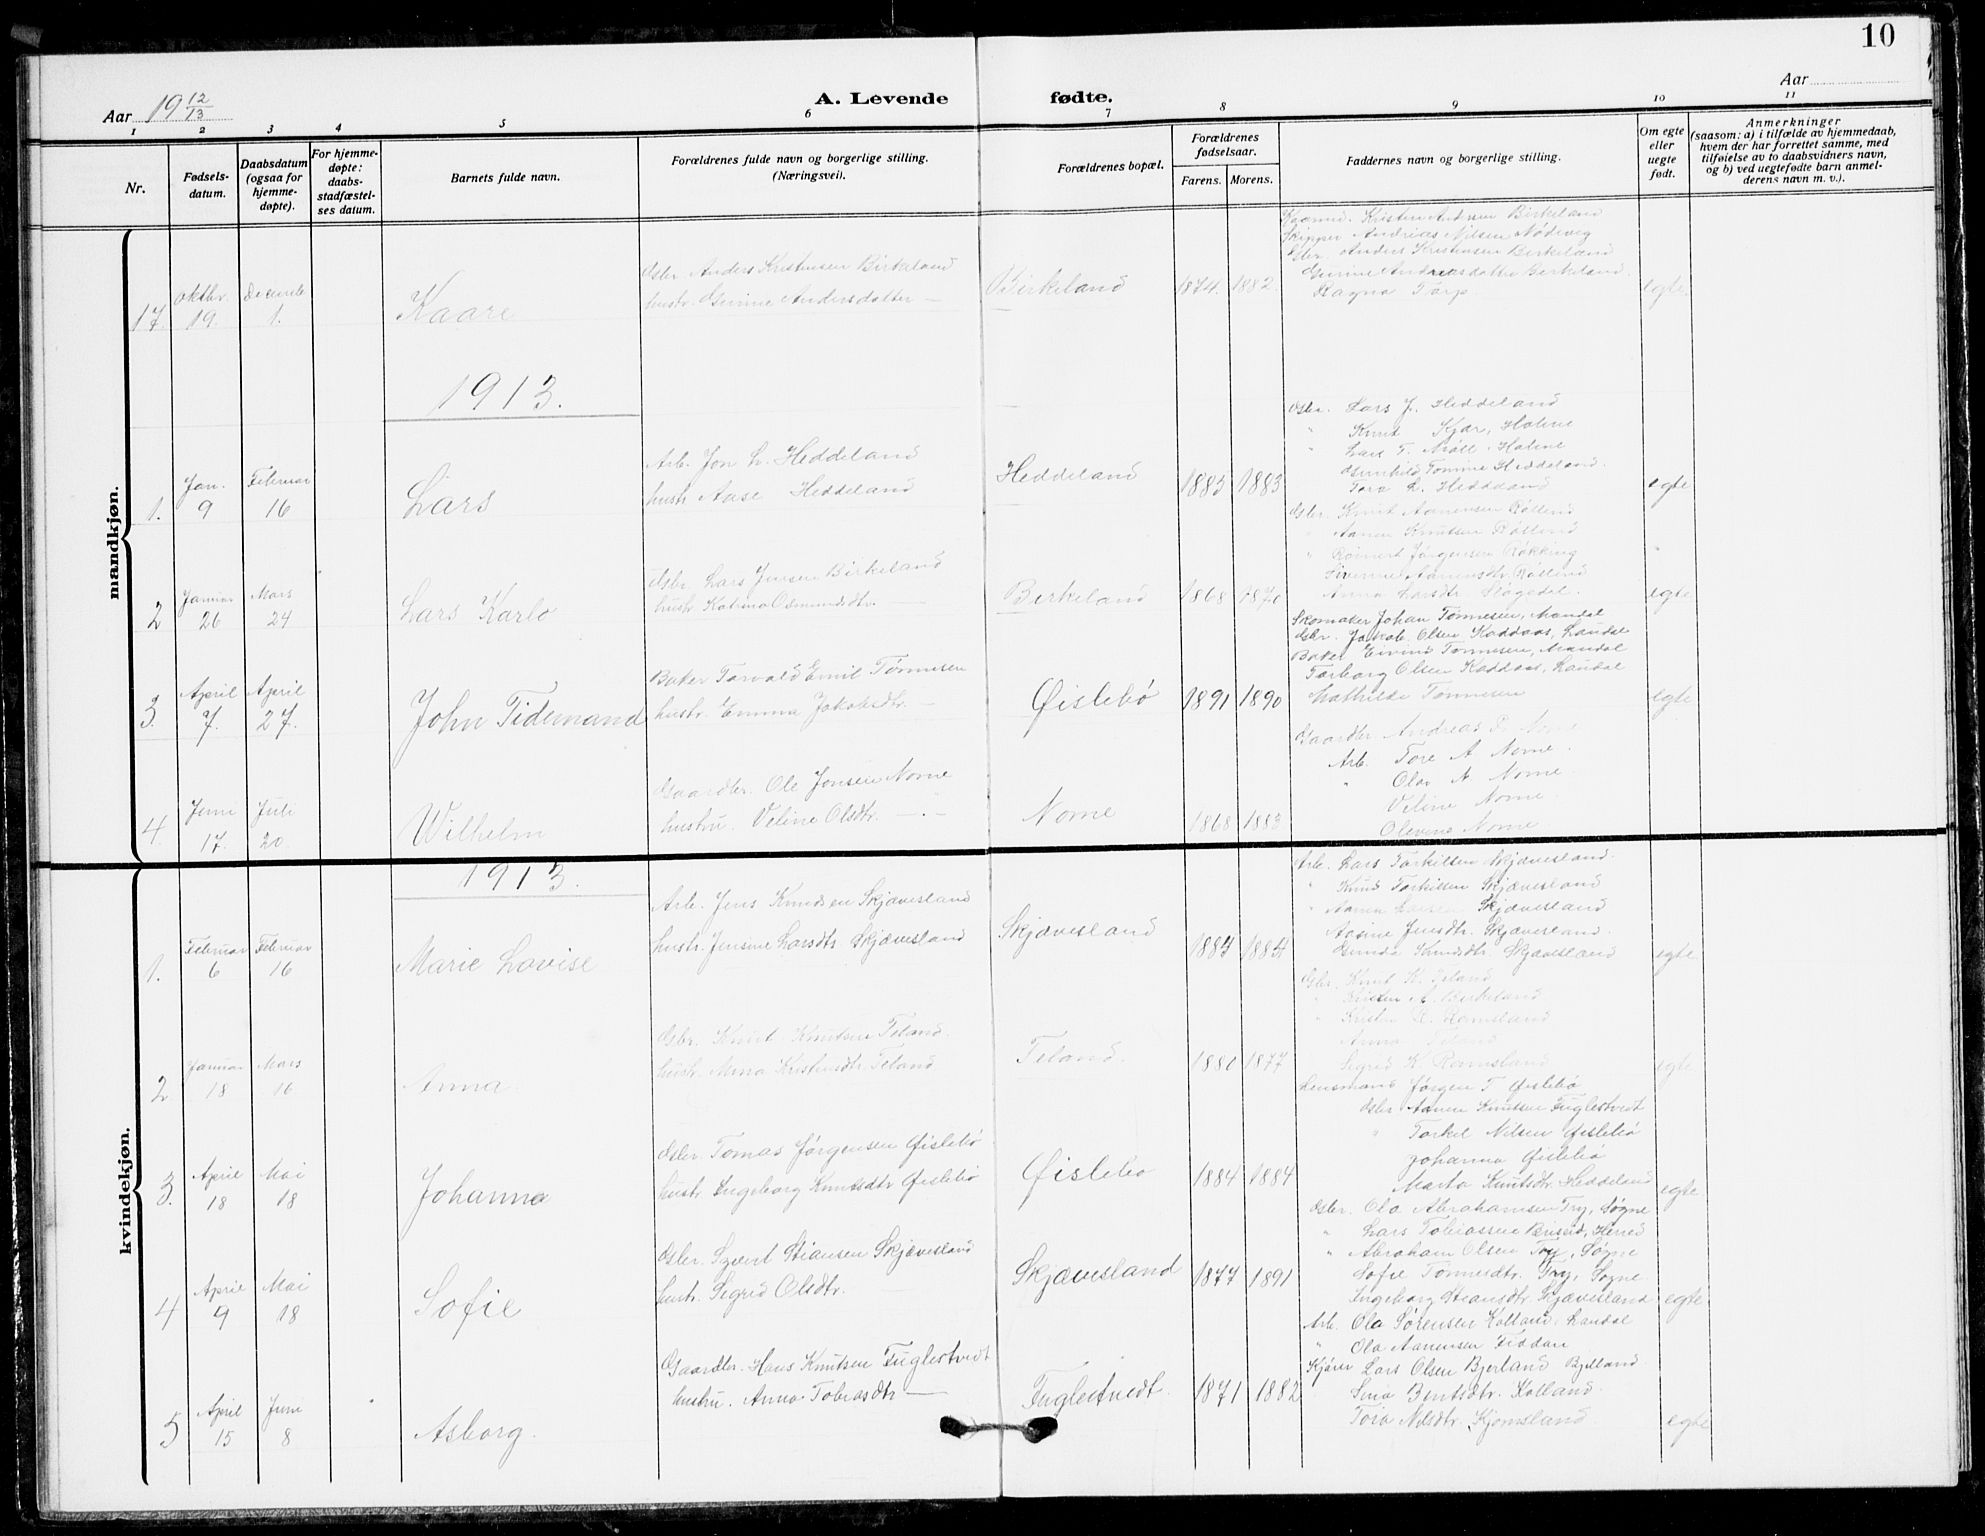 10
Aar 19 12/13
A. Levende fødte.
Aar
1 2 3 4 5 6 7 8 9 10 11
Nr.
Fødselsdatum.
Daabsdatum (ogsaa for hjemmedøpte).
For hjemmedøpte: daabsstadfæstelses datum.
Barnets fulde navn.
Forældrenes fulde navn og borgerlige stilling. (Næringsvei).
Forældrenes bopæl.
Forældrenes fødselsaar.
Farens. Morens.
Faddernes navn og borgerlige stilling.
Om egte eller uegte født.
Anmerkninger (saasom: a) i tilfælde av hjemmedaab, hvem der har forrettet samme, med tilføielse av to daabsvidners navn, og b) ved uegtefødte barn anmelderens navn m. v.).
mandkjøn.
17. Oktbr. 19. Decembr 1. Kaare
Gbr. Anders Kristensen Birkeland
hustr. Gurine Andersdatter —
Birkeland 1874. 1882.
Kristen Andersen Birkeland
Skipper Andreas Nilsen Nødivig
Gbr. Anders Kristensen Birkeland
Gurine Andreasdatter Birkeland.
Ragna Torp
egte
1913.
1. Jan. 9 Februar 16 Lars
Arb. Jon L. Heddeland
hustr. Aase Heddeland
Heddeland 1883 1883
Gbr. Lars J. Heddeland
" Knud Kjær, Holme
" Lars T. Møll, Holme
Gunhild Tomine Heddeland.
Tora L. Heddeland
egte
2 Januar 26 Mars 24 Lars Karlo
Gbr. Lars Jensen Birkeland
hustr. Katrina Osmundsdtr. —
Birkeland 1868 1870
Gbr. Knut Aanensen Røllend
" Aanen Knutsen Røllend
" Reinert Jørgensen Røkking
Sirenne Aanensdtr. Røllend
Anna Larsdtr. Øtogedal.
egte
3. April 7. April 27. John Tidemand
Baker Torvald Emil Tønnesen
hustr. Emma Jakobsdtr. —
Øislebø 1891 1890
Skomaker Johan Tønnesen, Mandal
Gbr. Jakob Olsen Kaddaas, Laudal
Baker Eivind Tønnesen, Mandal
Torborg Olsen Kaddaas, Laudal
Mathilde Tønnesen
egte
4. Juni 17. Juli 20. Wilhelm
Gaardbr. Ole Jonsen Nome
hustru. Veline Olsdtr. —
Nome 1868 1883
Gaardbr. Andreas P. Nome
Arb. Tore A Nome.
" Olav A. Nome.
Veline Nome.
Olevine Nome
kvindekjøn.
1913.
1. Februar 6 Februar 16 Marie Lovise
Arb. Jens Knudsen Skjævesland
hustr. Jensine Larsdtr Skjævesland
Skjævesland 1884 1884
Arb. Lars Torkilsen Skjævesland.
" Knud Torkilsen Skjævesland
" Aanen Larsen Skjævesland
Aasine Jensdtr. Skjævesland.
Gunda Knudsdtr. Skjævesland
egte
2 Januar 18 Mars 16 Anna
Gbr. Knut Knutsen Teland.
hustr. Anna Kristensdtr. Teland
Teland. 1881 1877
Gbr. Knut K. Teland
" Kristen A. Birkeland
" Kristen K. Ramsland
Anna Teland
Sigrid K. Ramsland
egte
3. April 18 Mai 18 Johanna
Gbr. Tomas Jørgensen Øislebø
hustr. Ingeborg Knutsdtr Øislebø
Øislebø 1884 1884
Lensmand Jørgen T Øislebø
Gbr Aanen Knutsen Fuglestvedt
" Torkel Nilsen Øislebø
Johanna Øislebø
Marta Knutsdtr. Heddeland
egte
4 April 9 Mai 18 Sofie
Gbr. Syvert Stiansen Skjævesland
hustr. Sigrid Olsdtr. —
Skjævesland 1877 1891
Gbr. Ola Abrahamsen Try, Søgne
" Lars Tobiassen Bruserd, Herred
" Abraham Olsen Try, Søgne
Sofie Tønnesdtr. Try, Søgne
Ingeborg Steansdtr. Skjævesland
egte
5 April 15 Juni 8 Asborg.
Gaardbr. Hans Knutsen Fuglestvedt
hustru. Anna Tobiasdtr —
Fuglestvedt. 1871 1882
Arb. Ola Sørensen Kolland, Laudal
" Ola Aanensen Fiddan
Kjører Lars Olsen Bjerland Bjelland
Sina Berntsdtr. Kolland.
Tora Nilsdtr. Kjønsland
egte